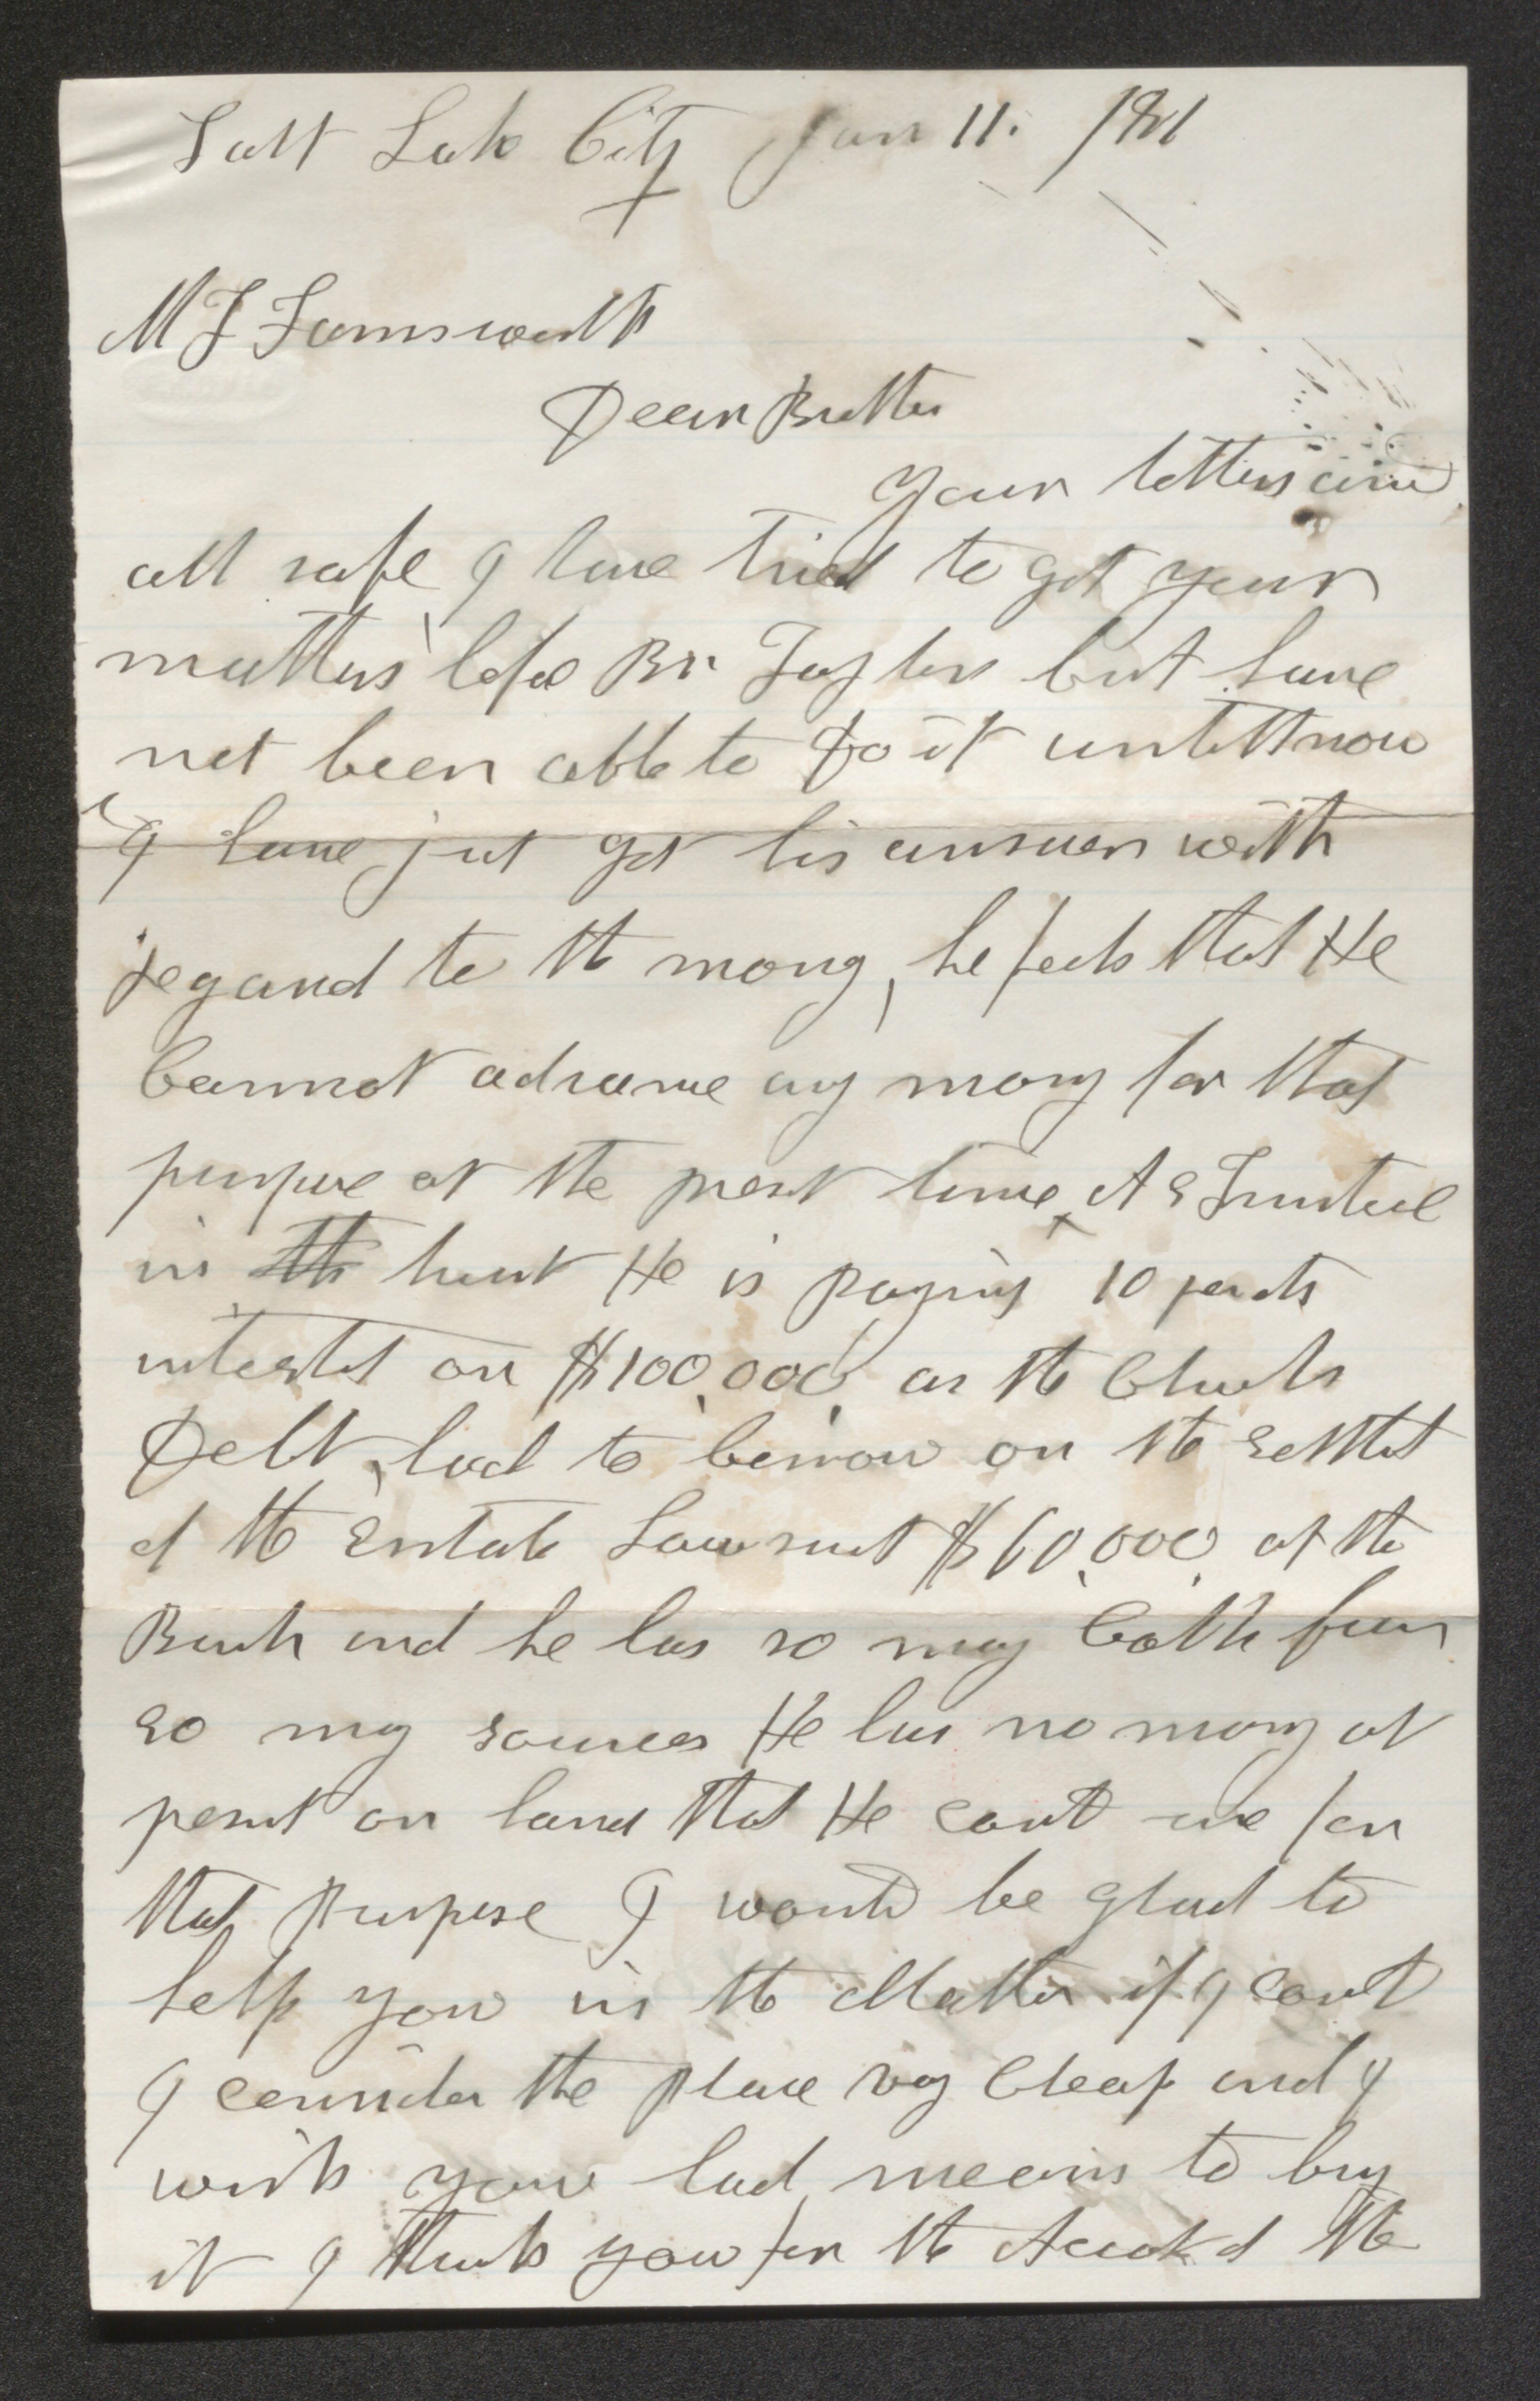 Salt Lake City Jan 11. 1881
M F Farnsworth
Dear Brother
Your letters arived
all safe I have tried to get your
matters before Br Taylor but have
not been able to do it untill now
I have just got his answer with
regard to the money, he feels that He
Cannot advance any money for that
purpose at the present time, As Trustee
in trust He is paying 10 per cts
interest on $100,000, as the Church
Debt, had to borrow on the settlement
of the Estate Lawsuit $60,000, at the
Bank and he has so many Calls from
so many sources He has no money at
present on hand that He could use for
that Purpose I would be glad to
help you in the Matter if I could
I consider the place very Cheap and I
wish you had means to buy
it I thank you for the Account of the